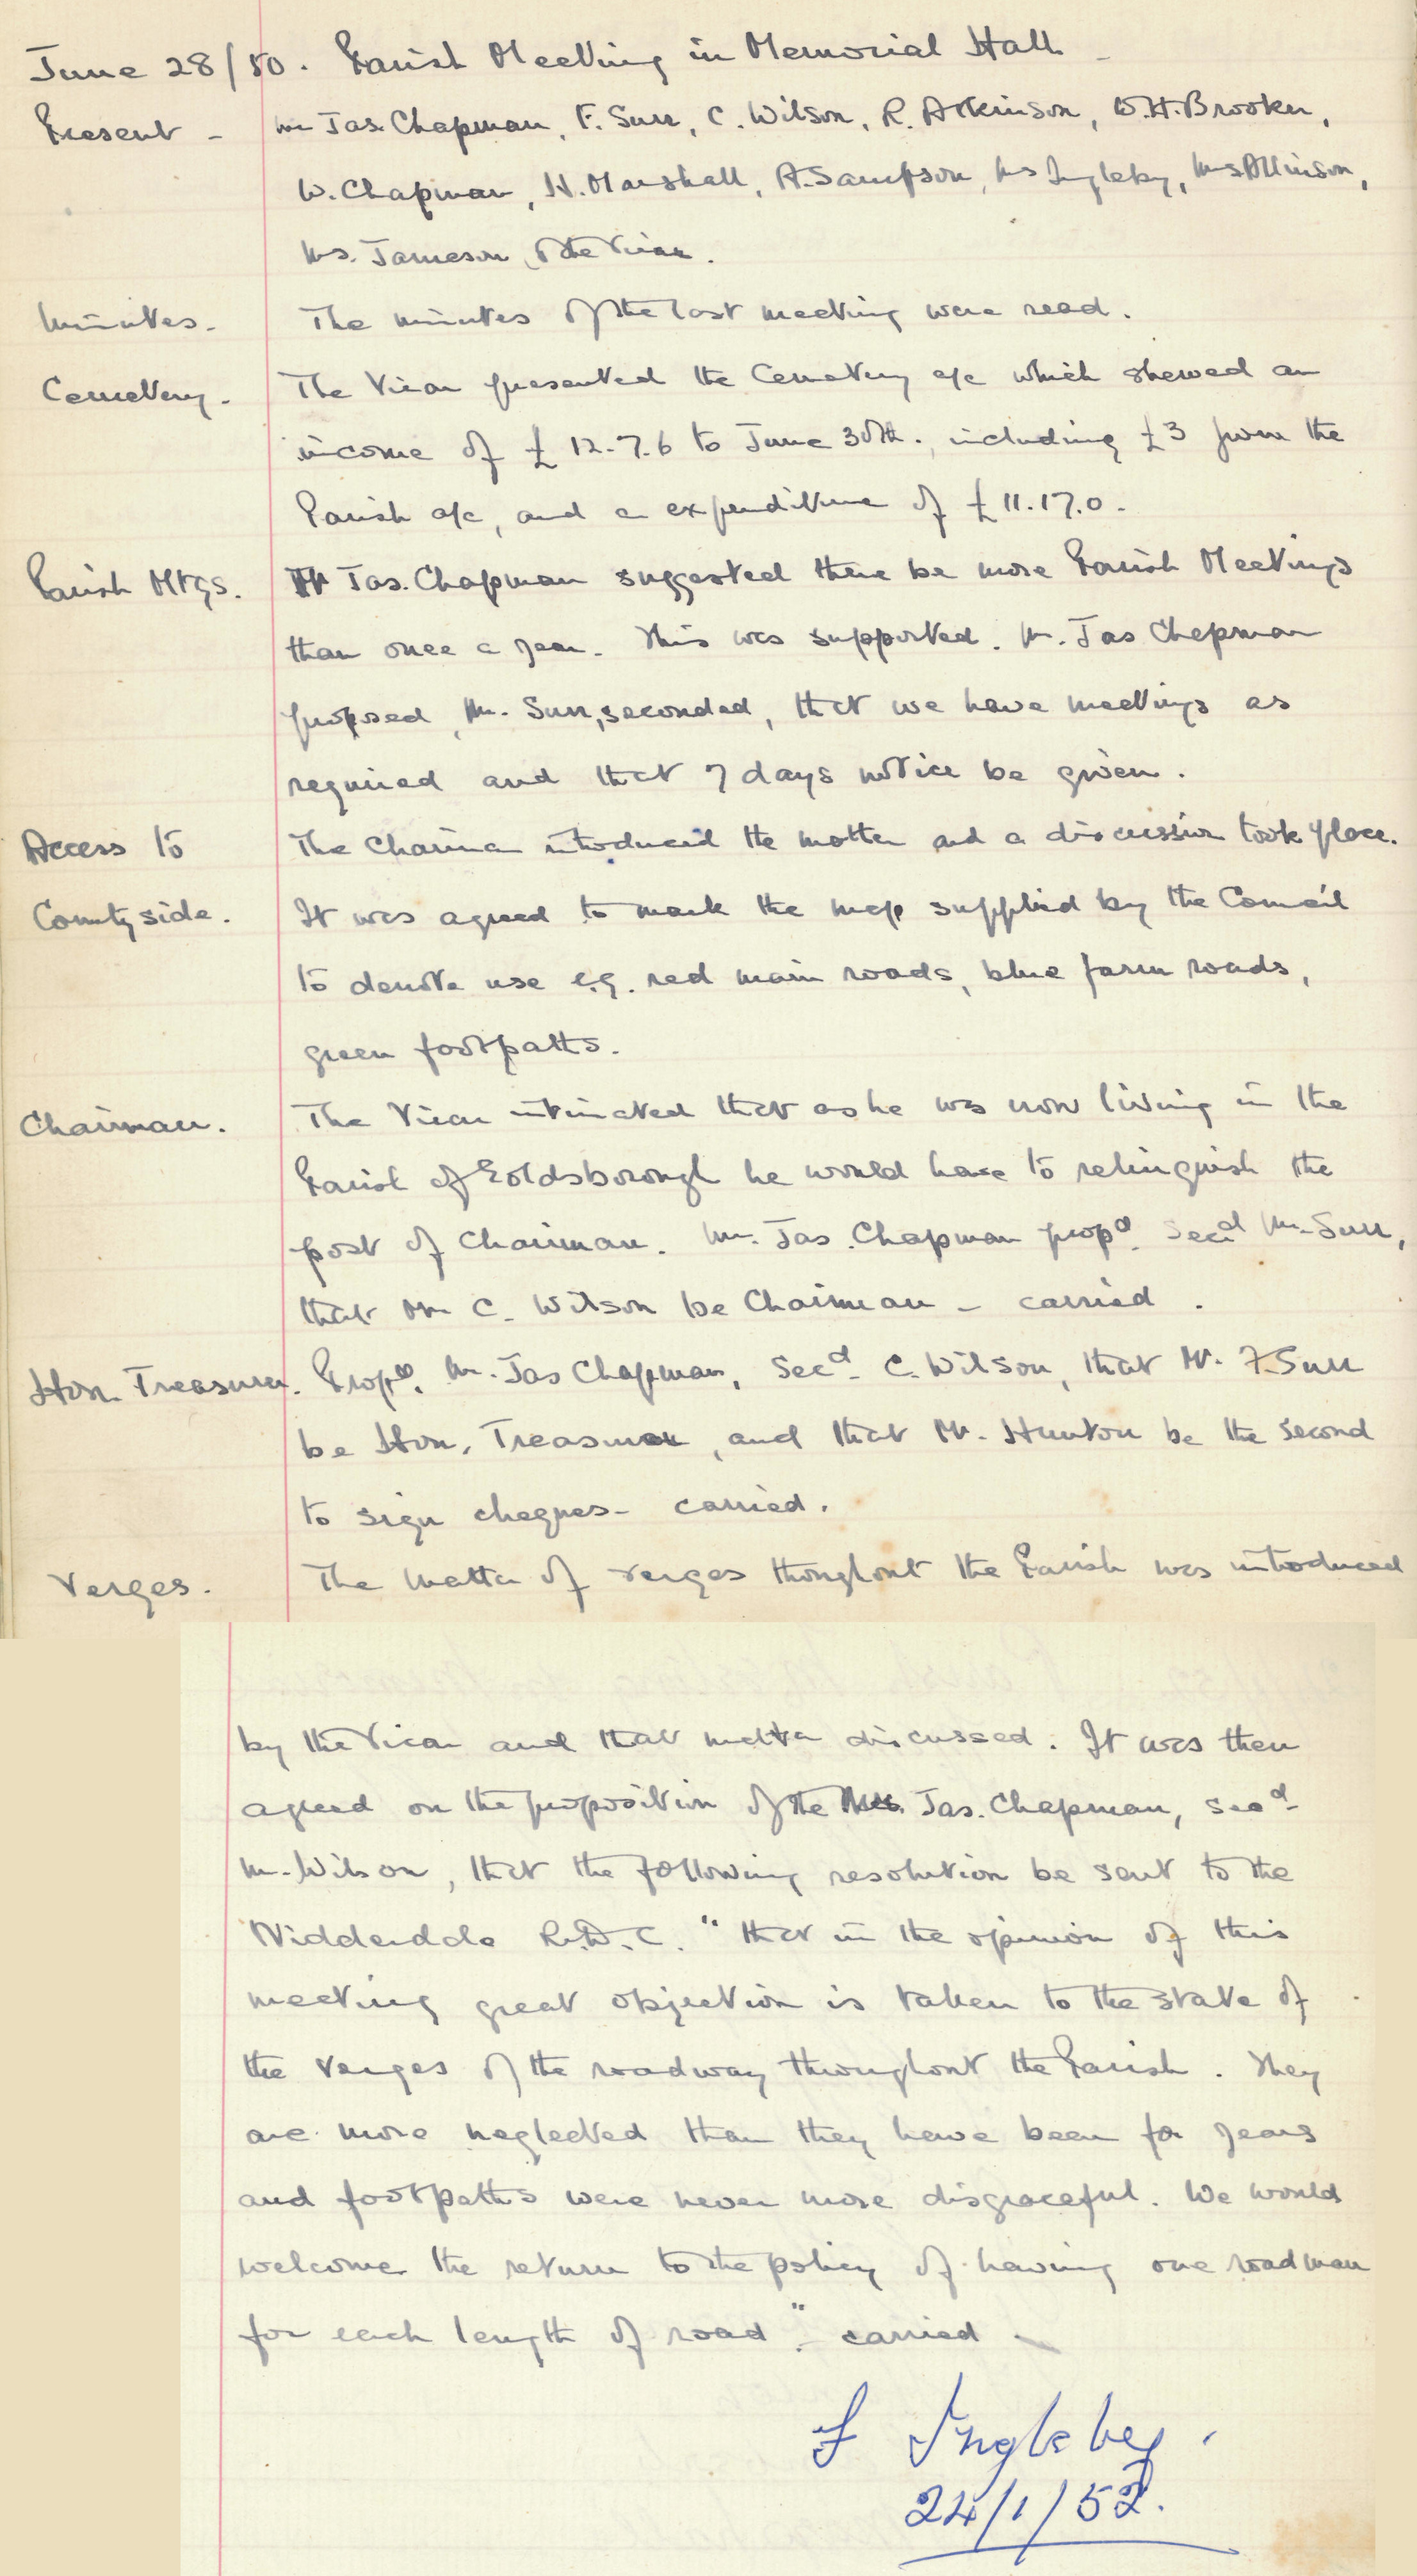 June 28/50. Parish Meeting in Memorial Hall -
Present - Mr Jas. Chapman, F. Surr, C. Wilson, R. Atkinson, W.H. Brooker,
W. Chapman, H. Marshall, A. Sampson, Mrs Ingleby, Mrs Allinson,
Mrs. Jameson, & the Vicar.
Minutes. The minutes of the last meeting were read.
Cemetery. The Vicar presented the Cemetery a/c which shewed an
income of £12.7.6 to June 30th., including £3 from the
Parish a/c, and an expenditure of £11.17.0.
Parish Mtgs. Mr Jas. Chapman suggested there be more Parish Meetings
than once a year. This was supported. Mr. Jas Chapman
proposed, Mr. Surr, seconded, that we have meetings as
required and that 7 days notice be given.
Access to The Chairman introduced the matter and a discussion took place.
Countyside. It was agreed to mark the map supplied by the Council
to denote use e.g. red main roads, blue farm roads,
green footpaths.
Chairman. The Vicar intimated that as he was now living in the
Parish of Goldsborough he would have to relinquish the
post of Chairman. Mr. Jas. Chapman propd. Secd Mr. Surr,
that Mr C. Wilson be Chairman - carried.
Hon. Treasurer. Propd. Mr. Jas Chapman, Secd. C. Wilson, that Mr. F. Surr
be Hon. Treasurer, and that Mr. Hunton be the second
to sign cheques - carried.
Verges. The matter of verges thoughout the Parish was introduced
by the Vicar and that matter discussed. It was then
agreed on the proposition of the Jas. Chapman, secd.
Mr. Wilson, that the following resolution be sent to the
Nidderdale R.D.C. "that in the opinion of this
meeting great objection is taken to the state of
the verges of the roadway throughout the Parish. They
are more neglected than they have been for years
and footpaths were never more disgraceful. We would
welcome the return to the policy of having one roadman
for each length of road." - carried -
F Ingleby.
24/1/52.